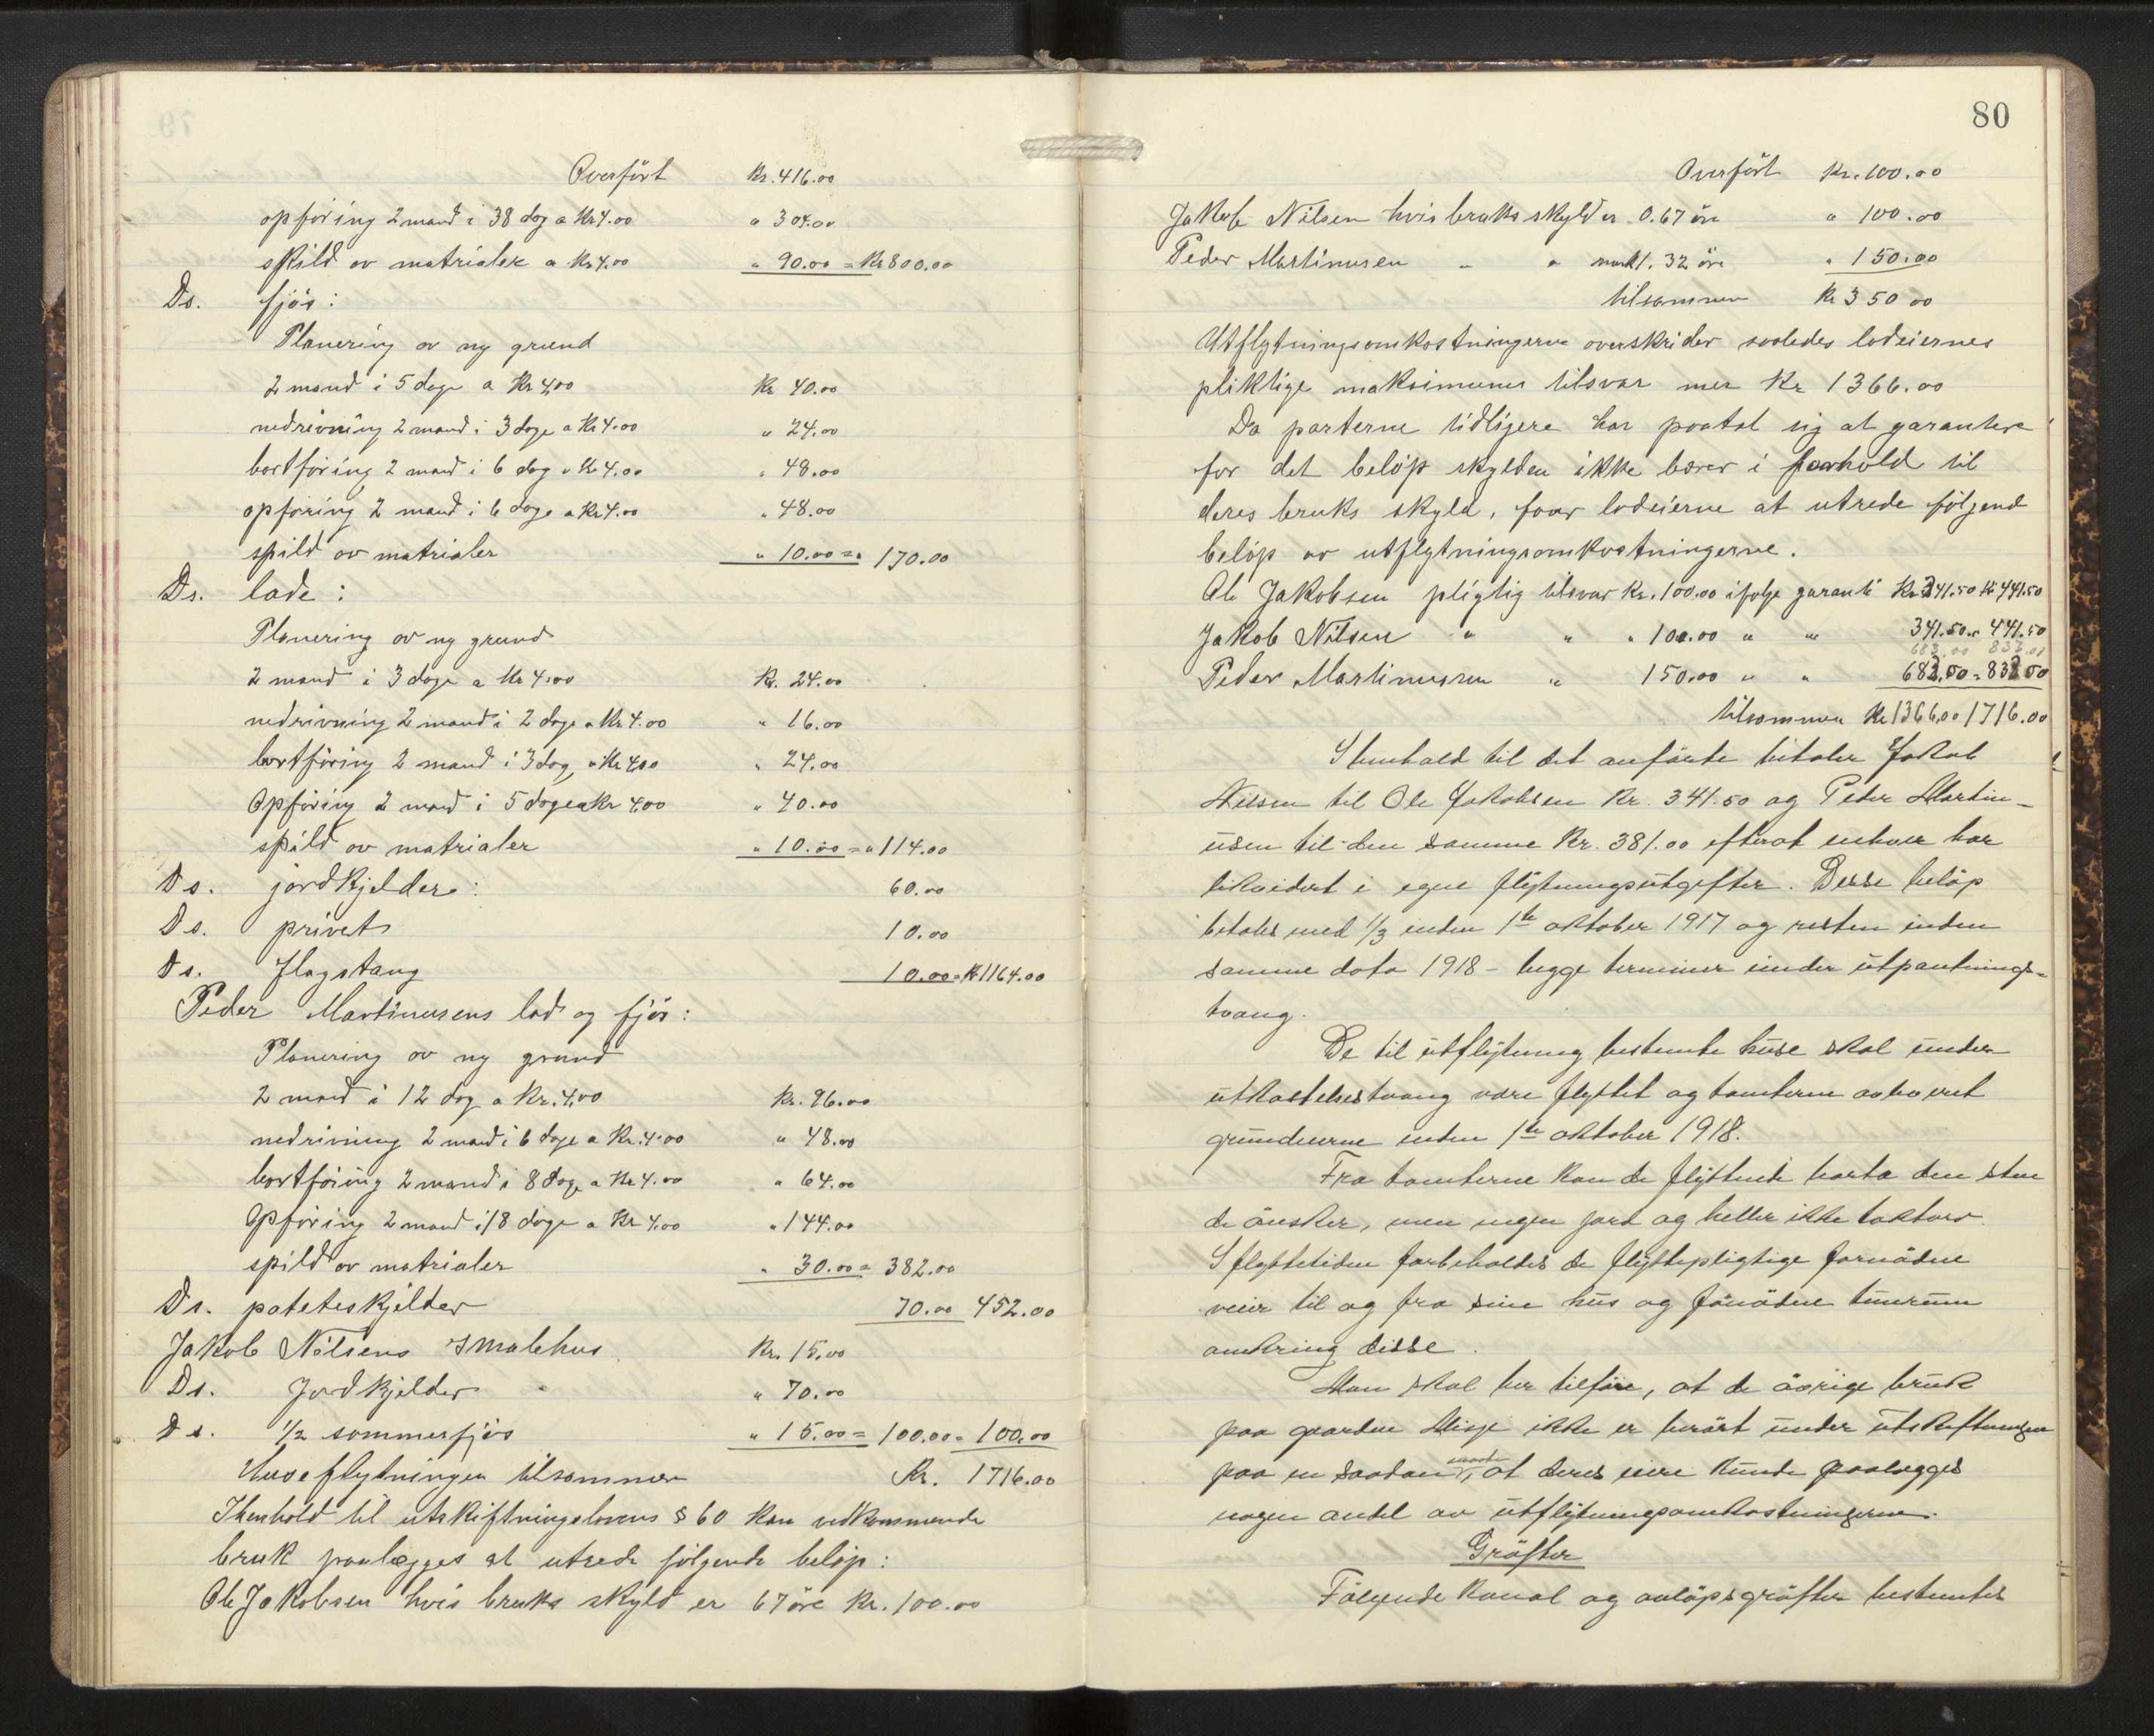 Overfört Kr. 416.00
opföring 2 mand i 38 dag a Kr 4.00 " 304.00
spild av matrialer a Kr 4.00 " 90.00 = Kr 800.00
Ds. fjös:
Planering av ny grund
2 mand i 5 dage a Kr 4,00 Kr 40.00
nedrivning 2 mand i 3 dage a Kr 4.00 " 24.00
bortföring 2 mand i 6 dag a Kr 4.00 " 48.00
opföring 2 mand i 6 dage a Kr 4.00 " 48.00
spild av matrialer " 10.00 = " 170.00
Ds. lade:
Planering av ny grund
2 mand i 3 dage a Kr 4.00 Kr. 24.00
nedrivning 2 mand i 2 dage a Kr 4.00 " 16.00
bortföring 2 mand i 3 dag, a Kr 4,00 " 24.00
Opföring 2 mand i 5 dage a Kr 4,00 " 40.00
spild av matrialer " 10.00 = " 114.00
Ds. jordkjelder: 60.00
Ds. privet 10.00
Ds. flagstang 10.00 = Kr 1164.00
Peder Martinusens lade og fjös:
Planering av ny grund
2 mand i 12 dag a Kr. 4,00 Kr. 96.00
nedrivning 2 mand i 6 dage a Kr. 4.00 " 48.00
bortföring 2 mand i 8 dage a Kr 4.00 " 64.00
Opföring 2 mand i 18 dage a Kr 4.00 " 144.00
spild av matrialer " 30.00 = 382.00
Ds. poteteskjelder 70.00 452.00
Jakob Nilsens smalehus Kr. 15.00
Ds. Jordkjelder " 70.00
Ds. 1/2 sommerfjös " 15.00 = 100.00 = 100.00
Huseflytningen tilsammen Kr. 1716.00
I henhold til utskiftningslovens § 60 kan vedkommende
bruk paalægges at utrede følgende beløp:
Ole Jakobsen hvis bruks skyld er 67 øre Kr. 100.00
80
Overfört Kr. 100.00
Jakob Nilsen hvis bruks skyld er 0.67 öre " 100.00
Peder Martinusen " " mark 1.32 öre " 150.00
tilsammen Kr 350 00
Utflytningsomkostningerne overskrider saaledes lodeiernes
pliktige maksimums tilsvar mer Kr 1366.00
Da parterne tidligere har paatat sig at garantere
for det beløp skylden ikke bærer i forhold til
deres bruks skyld, faar lodeierne at utrede følgend
beløp av utflytningsomkostningerne.
Ole Jakobsen pligtig tilsvar Kr. 100.00 ifølge garanti Kr 341.50 Kr 441.50
Jakob Nilsen " " " 100.00 " " 341.50 " 441.50
683.00 833.00
Peder Martinusen " 150.00 " " 683,00 = 833 00
tilsammen Kr 1366,00 1716.00
I henhold til det anförte betaler Jakob
Nilsen til Ole Jakobsen Kr. 341.50 og Peder Martin-
usen til den samme Kr. 381.00 efterat enhver har
likvidert i egne flytningsutgifter. Disse belöp
betales med 1/3 inden 1ste oktober 1917 og resten inden
samme dato 1918 – begge terminer under utpantnings-
tvang.
De til utflytning bestemte huse skal under
utkastelsestvang være flyttet og tomterne avleveret
grundeierne inden 1ste oktober 1918.
Fra tomterne kan de flyttende borta den sten
de önsker, men ingen jord og heller ikke taktorv.
I flyttetiden forbeholdes de flyttepligtige fornödne
veier til og fra sine hus og fönödne tunrum
omkring disse.
Man skal her tilföie, at de övrige bruk
paa gaarden ikke er berört under utskiftningen
paa en saadan maate, at deres eiere kunde paalægges
nogen andel av utflytningsomkostningerne.
Gröfter
Fölgende kanal og avlöpsgröfter bestemtes